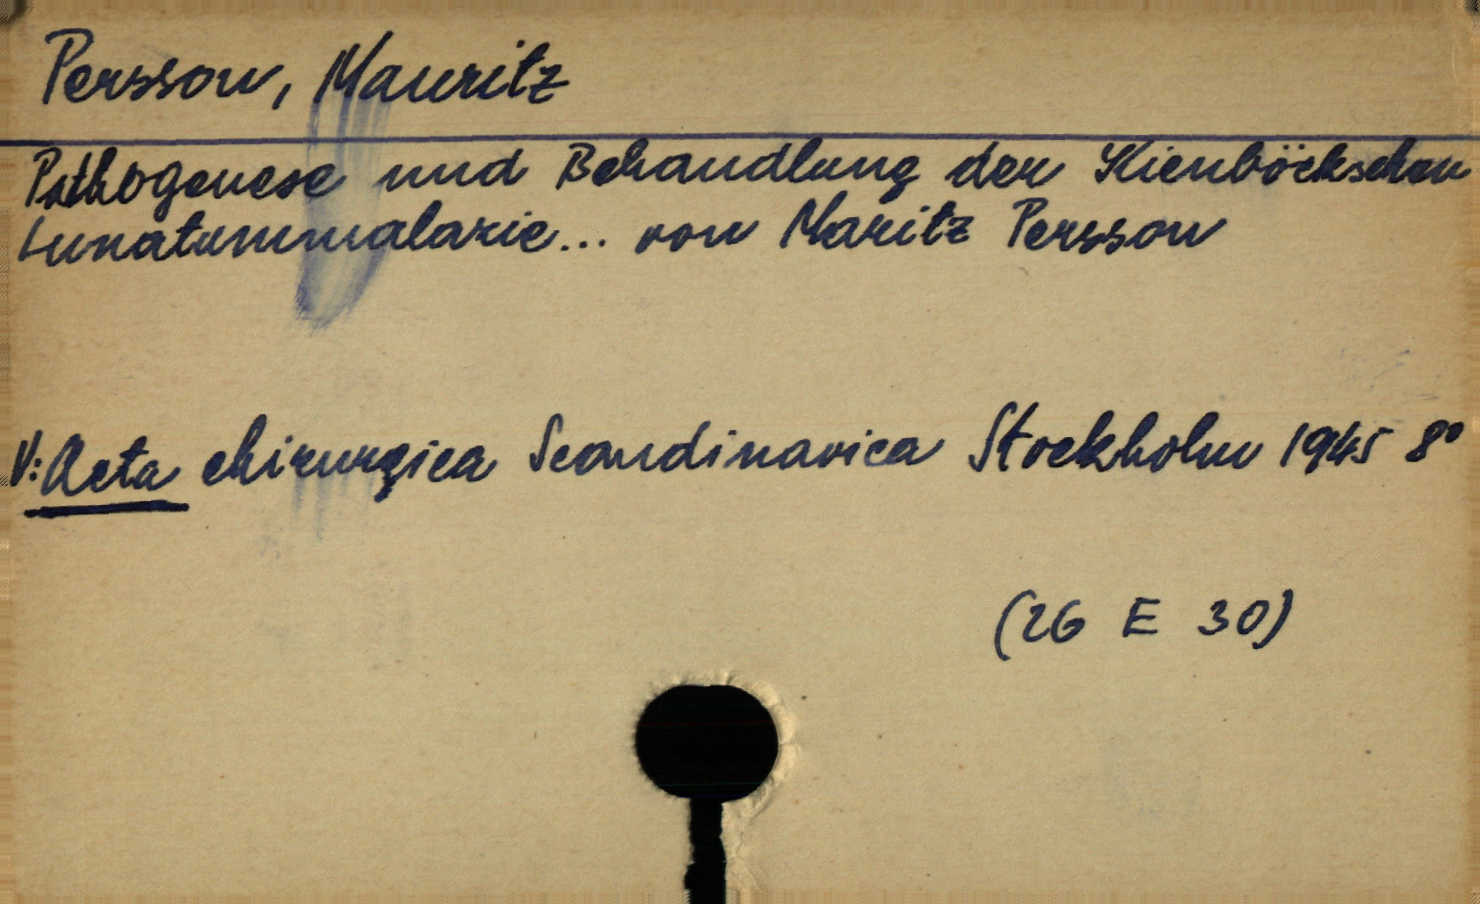 Persson, Mauritz
Pathogenese und Behandlung der Kienböckschen
Lunatummalazie... von Maritz Persson
V: Acta chirurgica Scandinavica Stockholm 1945 8°
(26 E 30)